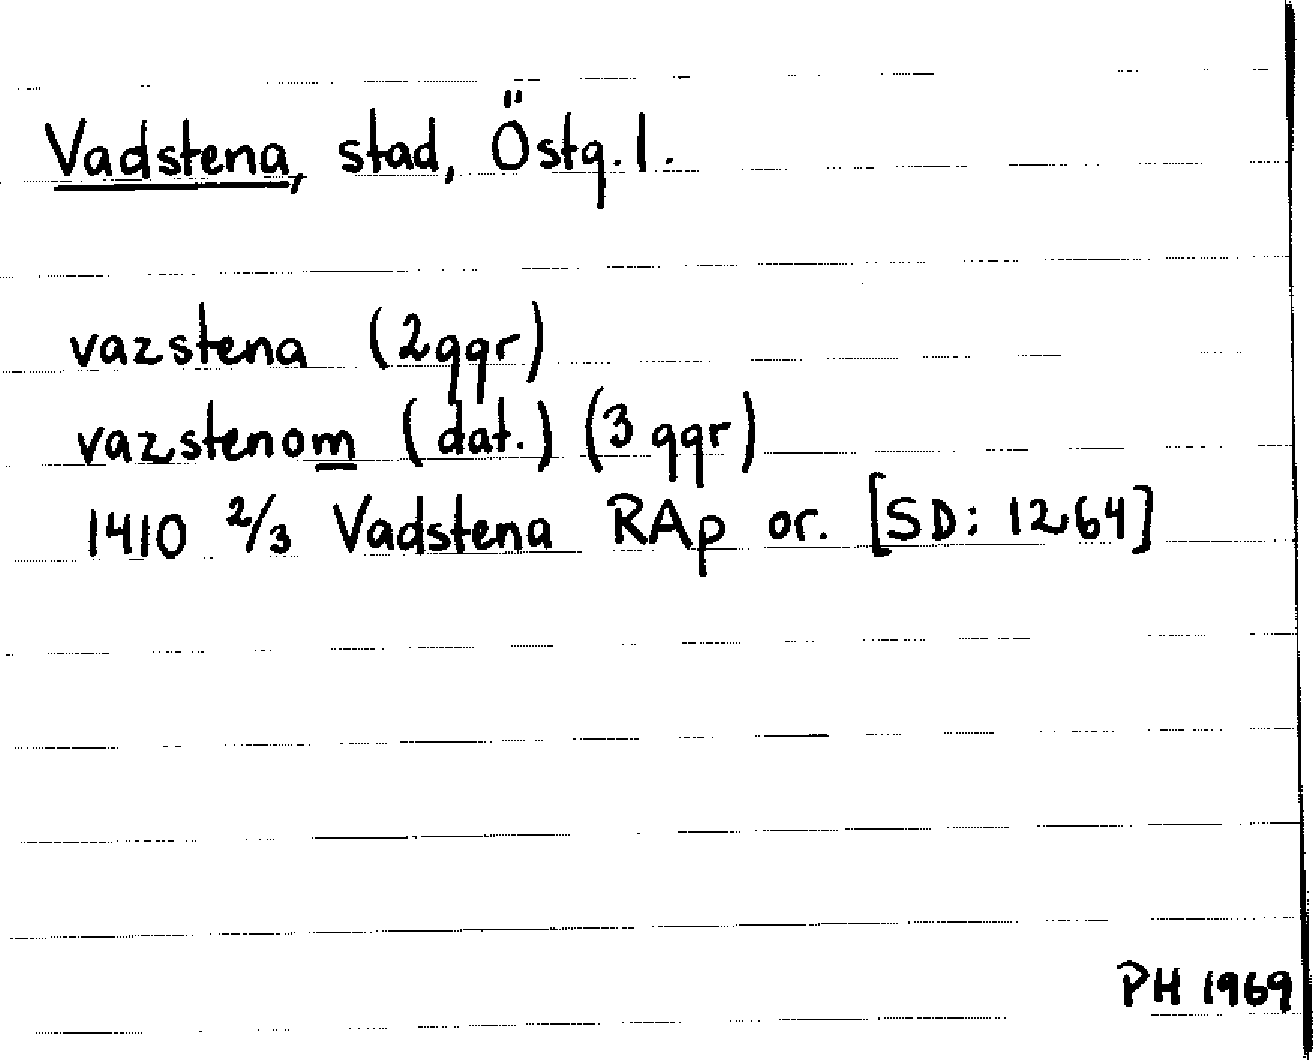 Vadstena, stad, Östg.l.
vazstena (2ggr)
vazstenom (dat.) (3 ggr)
1410 2/3 Vadstena RAp or. [SD: 1264]
PH 1969